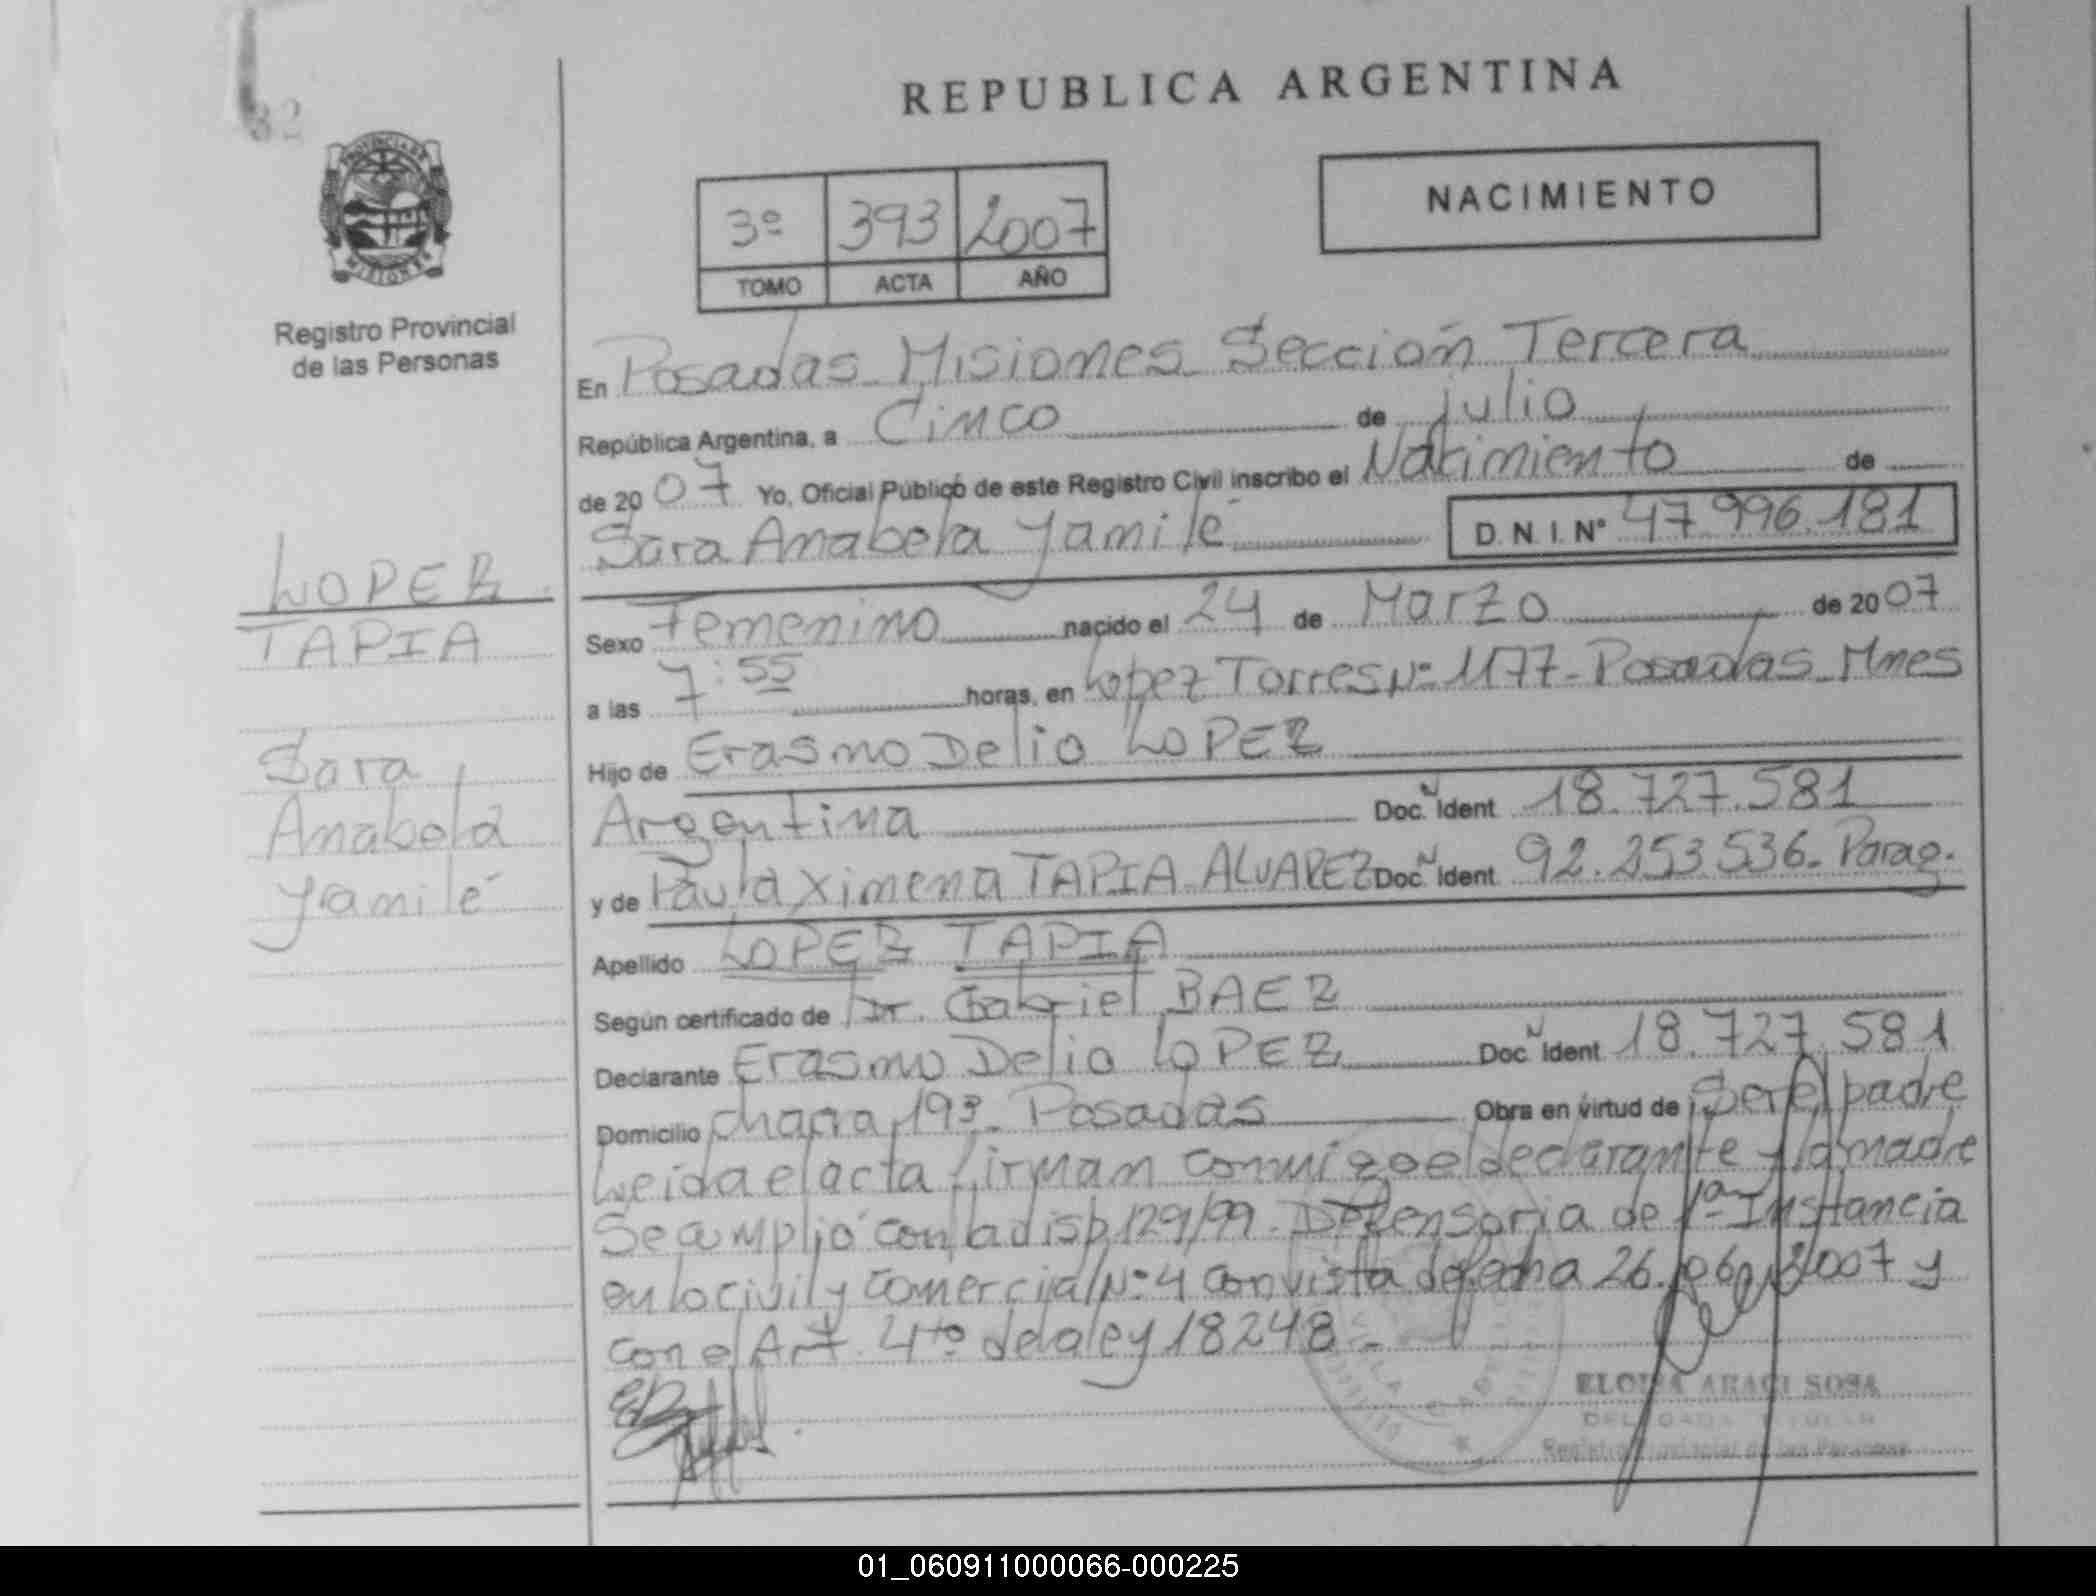 REPUBLICA ARGENTINA
82
PROVINCIA DE
MISIONES
Registro Provincial
de las Personas
3º 393 2007
TOMO ACTA AÑO
NACIMIENTO
En Posadas Misiones Sección Tercera
República Argentina, a Cinco de julio
de 2007 Yo, Oficial Público de este Registro Civil inscribo el Nacimiento de
Sara Anabela Yamilé D.N.I.Nº 47.996.181
LOPEZ
TAPIA
Sara
Anabela
Yamilé
Sexo Femenino nacido el 24 de Marzo de 2007
a las 7:55 horas, en Lopez Torres Nº 1177 - Posadas Mnes
Hijo de Erasmo Delio LOPEZ
Argentina Doc. N Ident 18.727.581
y de Paula Ximena TAPIA ALVAREZ Doc. N Ident 92.253.536. Parag.
Apellido LOPEZ TAPIA
Según certificado de Dr. Gabriel BAEZ
Declarante Erasmo Delio LOPEZ Doc. N Ident 18.727.581
Domicilio chacra 193 - Posadas Obra en virtud de Ser el padre
Leida el acta firman conmigo el declarante y la madre
Se cumplió con la disp 129/99. Defensoria de 1ª Instancia
en lo civil y comercial Nº 4 con vista de fecha 26.06.2007 y
con el Art. 4to de la ley 18248 -
ARACI SOSA
DELEGADA TITULAR
Registro Provincial de las Personas
01_060911000066-000225